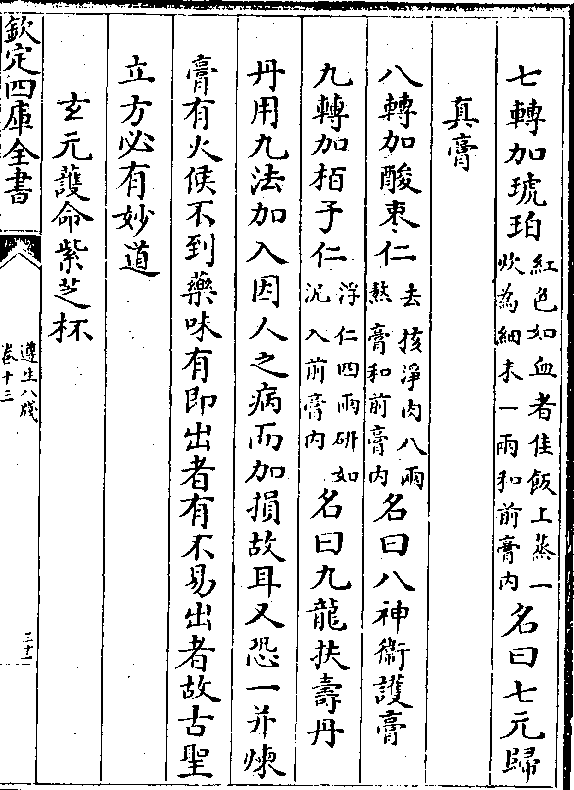 七轉加琥珀紅色如血者佳飯上蒸一炊為細末一兩和前膏内名曰七元歸
真膏
八轉加酸棗仁去核淨肉八兩熬膏和前膏内名曰八神衛護膏
九轉加栢子仁浮仁四兩研如沉入前膏内名曰九龍扶壽丹
丹用九法加入因人之病而加損故耳又恐一并煉
膏有火候不到藥味有即出者有不易出者故古聖
立方必有妙道
玄元護命紫芝杯
欽定四庫全書
遵生八牋
卷十三
三十一